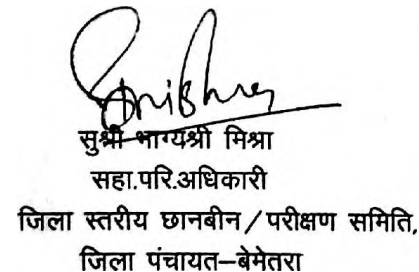 सुश्री भाग्यश्री मिश्रा
सहा.परि.अधिकारी
जिला स्तरीय छानबीन/परीक्षण समिति,
जिला पंचायत–बेमेतरा